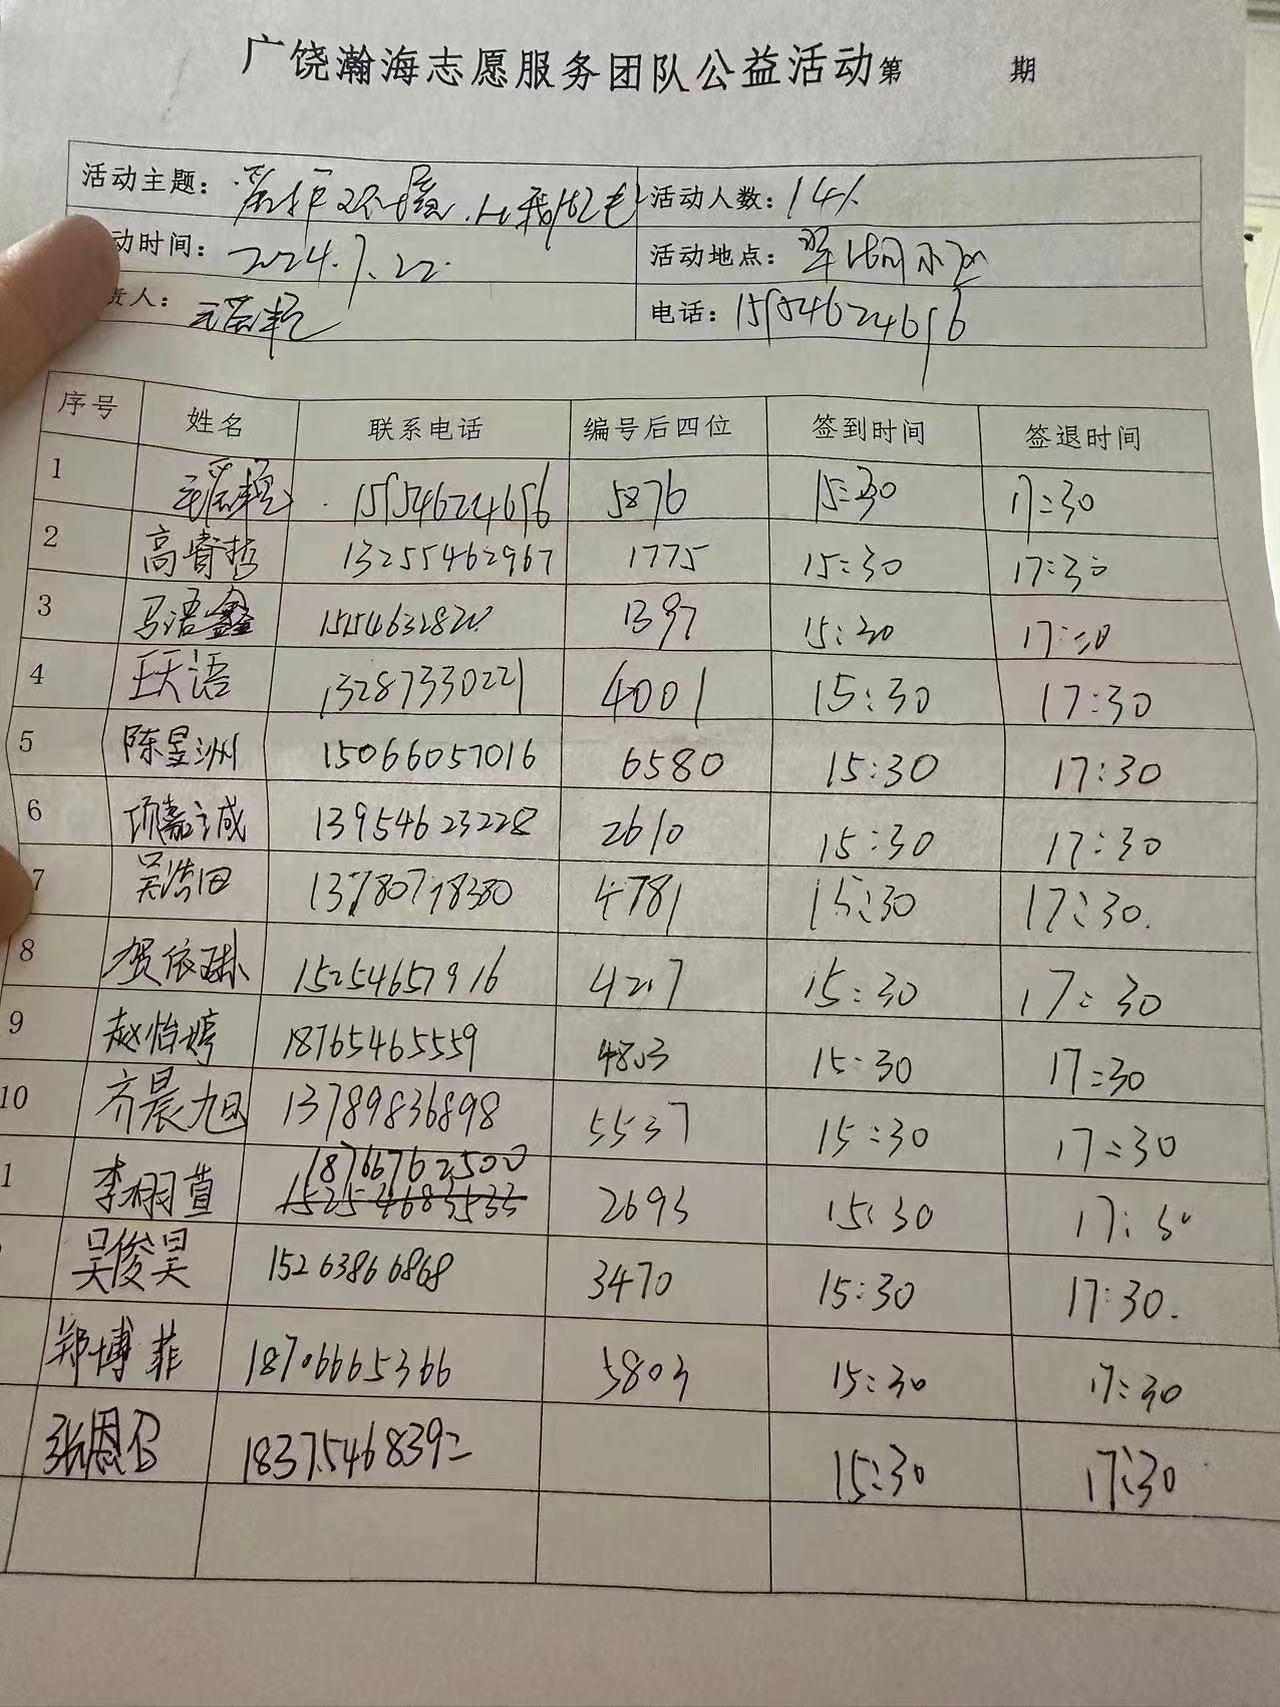 广饶瀚海志愿服务团队公益活动第 期
活动主题：爱护环境，从我做起 活动人数：14人
动时间：2024.7.22. 活动地点：小区
责人： 电话：15954624656
序号 姓名 联系电话 编号后四位 签到时间 签退时间
1 15954624656 5876 15:30 17:30
2 高睿哲 13255462967 1775 15:30 17:30
3 马语鑫 1397 15:30 17:30
4 王天语 13287330221 4001 15:30 17:30
5 陈昱洲 15066057016 6580 15:30 17:30
6 项嘉诚 13954623228 2610 15:30 17:30
7 吴浩田 13780778380 4781 15:30 17:30.
8 贺依琳 15254657916 4217 15:30 17:30
9 赵怡婷 18765465559 4803 15:30 17:30
10 齐晨旭 13789836898 5537 15:30 17:30
18766762500
1 李栩萱 15254683533 2693 15:30 17:30
吴俊昊 15263866868 3470 15:30 17:30.
郑博菲 18706665366 5803 15:30 17:30
张恩 18375468392 15:30 17:30